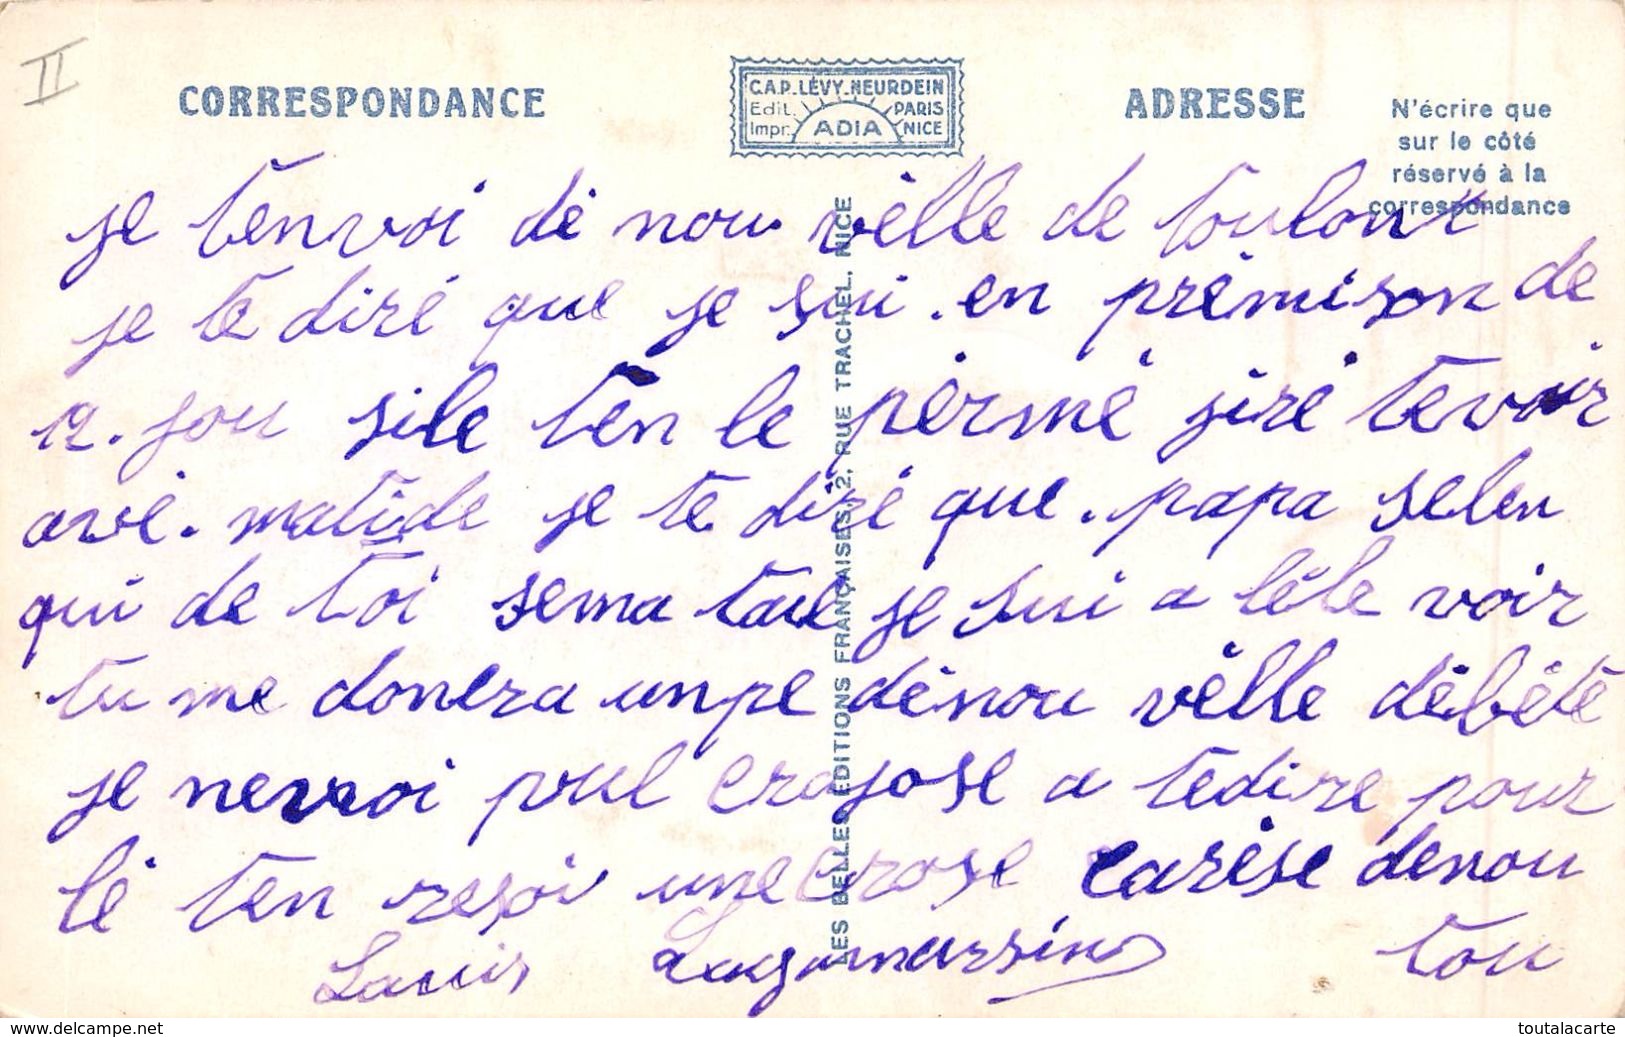 II
CORRESPONDANCE
C.A.P. LÉVY-NEURDEIN
Edit. PARIS
Impr. ADIA NICE
ADRESSE
N'écrire que
sur le côté
réservé à la
correspondance
LES BELLES EDITIONS FRANÇAISES, 2, RUE TRACHEL, NICE
je tenvoi dé nou vèlle de toulont
je te diré que je sui . en prèmison de
12 . jou sile ten le pèrmé jiré te voir
avé . matide je te diré que . papa selen
qui de toi sema tau je sui a léle voir
tu me donera unpe dénou vèlle débété
je nevoi pul crajose a tedire pour
lé ten resoi une crose carése denou
Lauis tou
www.delcampe.net
toutalacarte